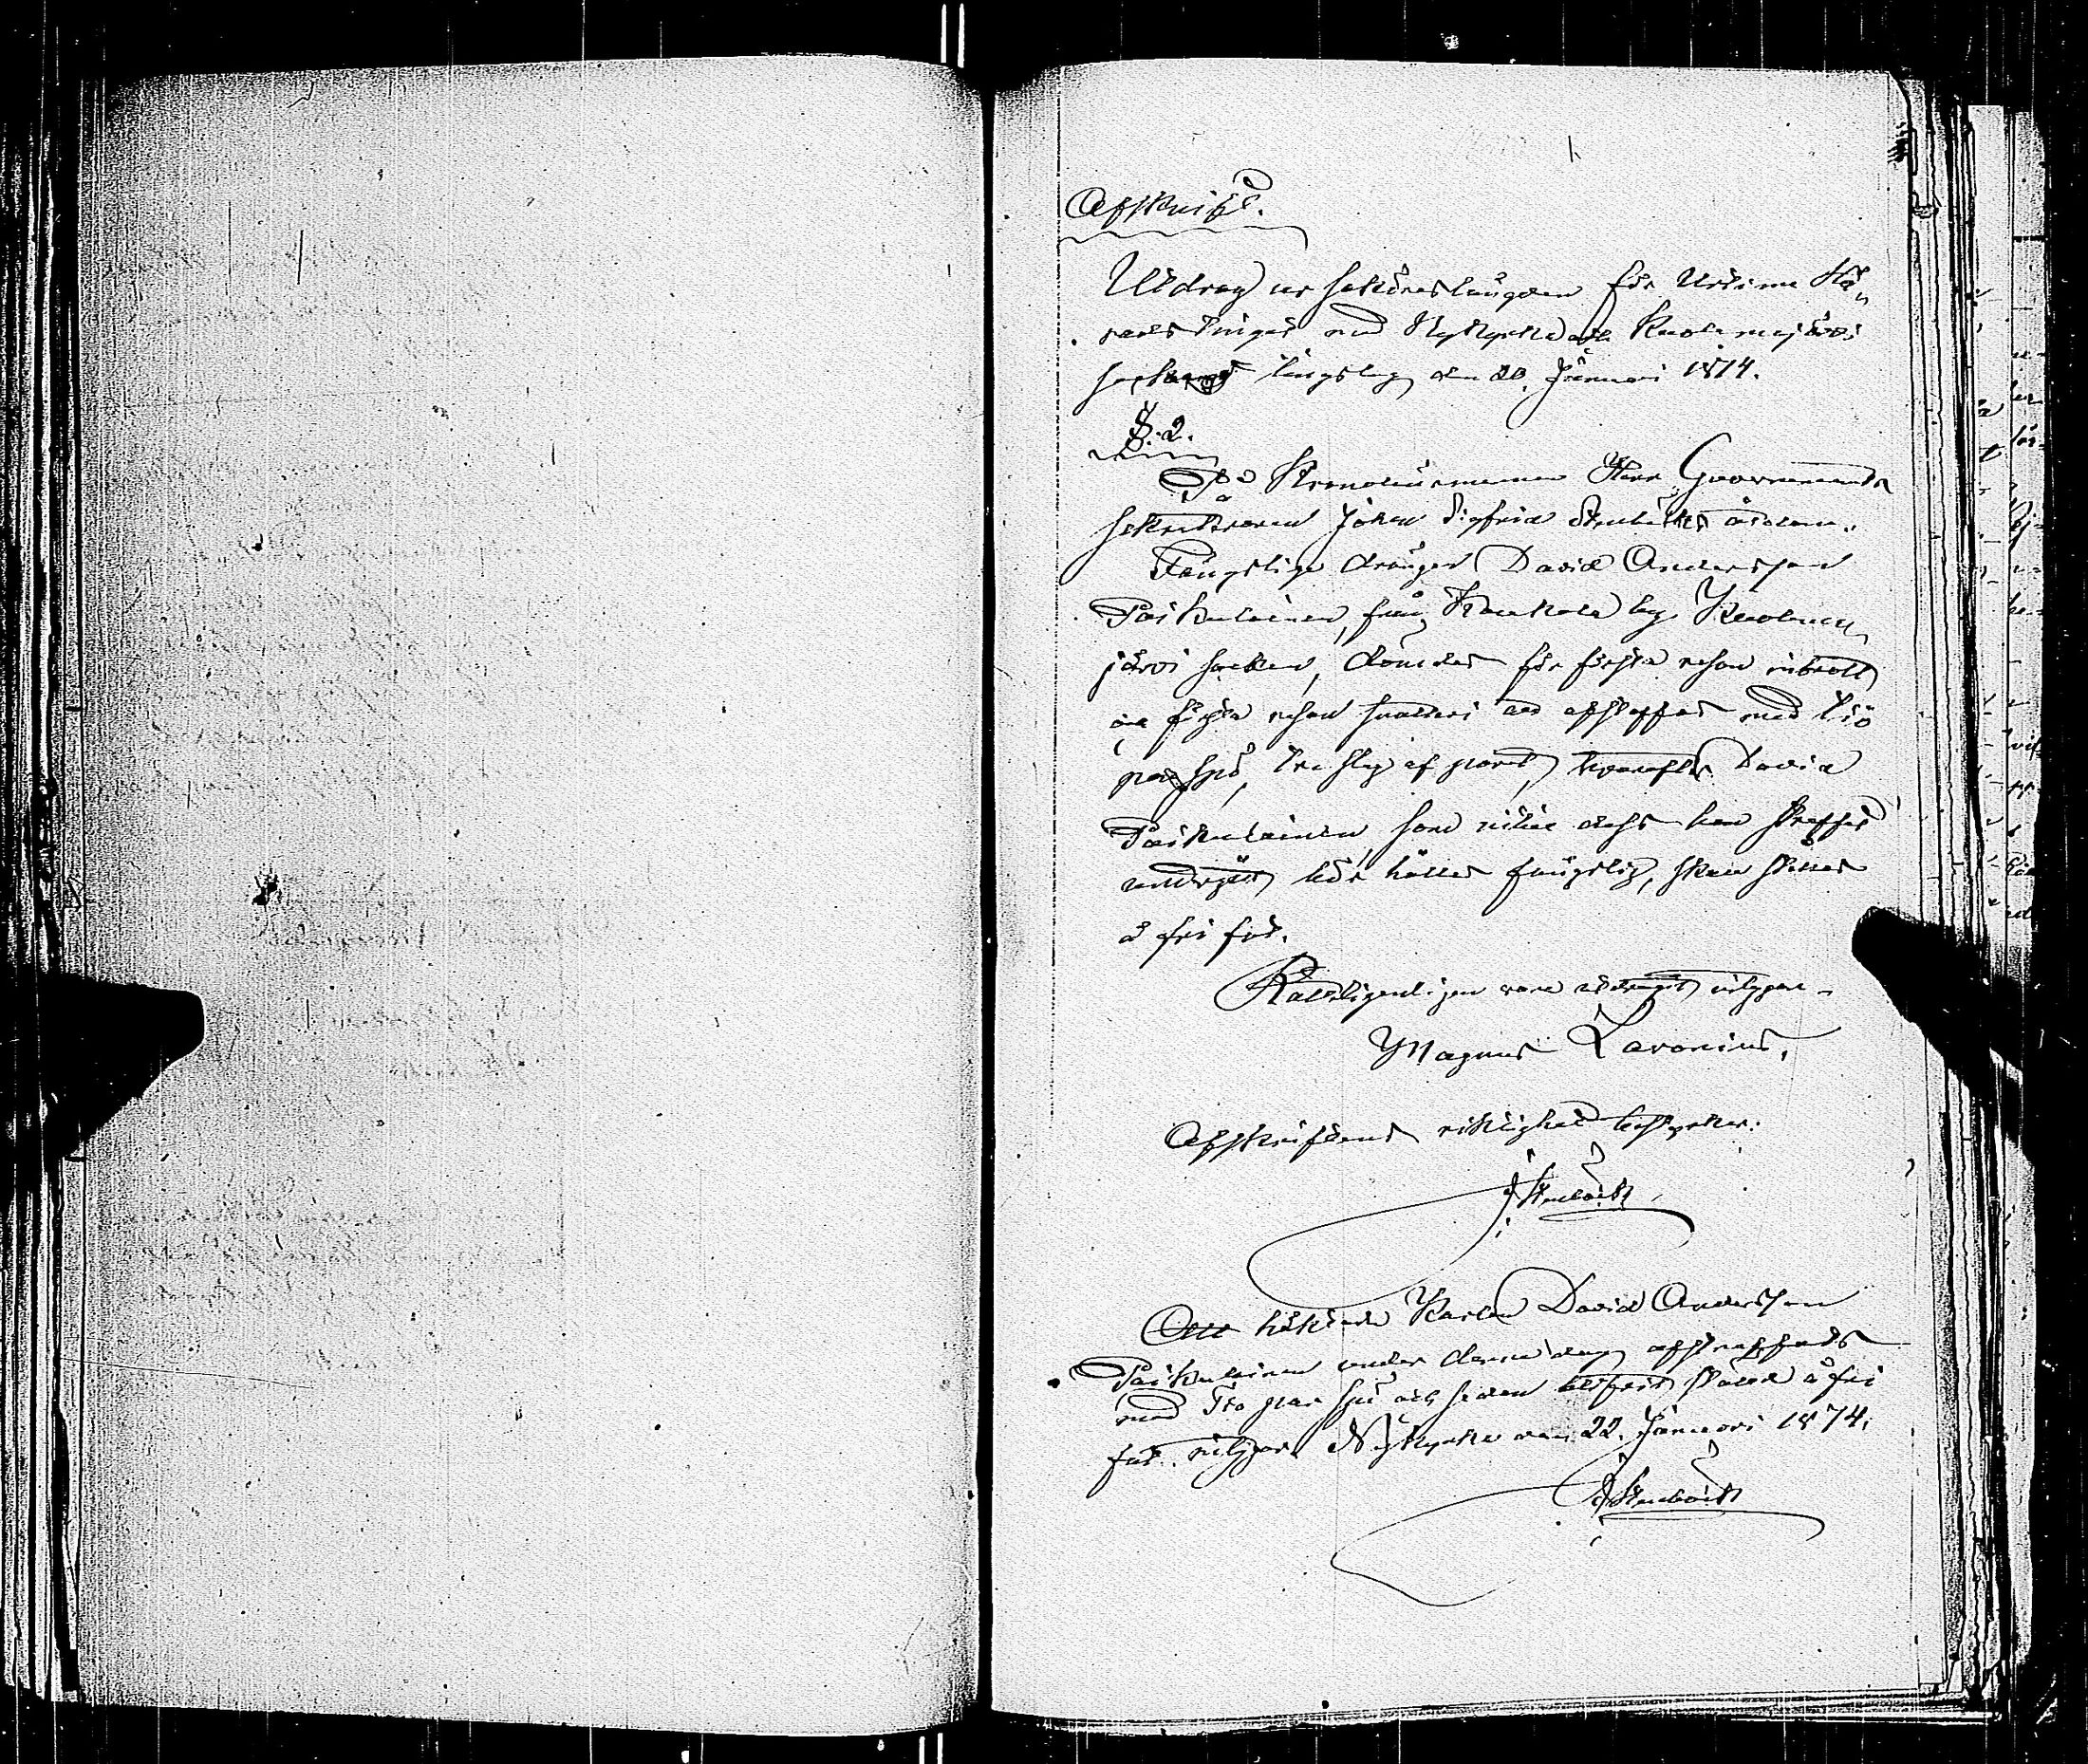 Afskrift.
Utdrag ur saköreslängden för Urtima Hä„
radstinget med Nykyrka och Kuolemajärvi
socknars tingslag den 20 Januari 1874.
§. 2.
På Kronolänsmannen Herr Guvernements
Sekreteraren Johan Sigfrid Stenbäcks åtal.
Fängslige drängen David Andersson
Paikulainen, från Kaukola by Kuolema„
järvi socken, dömdes för första resan inbrott
och första resan snatteri att afstraffas med tio
par spö, tre slag af paret, hvarefter David
Paikulainen, som intill dess han straffet
undergått bör hållas fängslig, skall ställas
å fri fot.
Rätteligen vara utdraget, intygar
Magnus Lavonius.
Afskriftens riktighet bestyrker:
J Stenbäck
Att häktade Karlen David Andersson
Paikulainen under denna dag afstraffats
med Tio par spö och sedan blifvit ställd å fri
fot, intygar. Nykyrka den 22. Januari 1874.
J Stenbäck